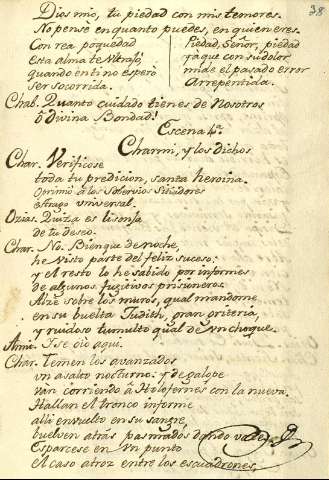 38
Dios mio, tu piedad con mis temores.
No pensè en quanto puedes, en quien eres.
Con rea poquedad
Esta alma te Ultrajó,
quando en ti no esperò
Ser socorrida.
Piedad, Señor, piedad
ya que con su dolor
mide el pasado error
Arrepentida.
Chab. Quanto cuidado tienes de Nosotros
ò Divina Bondad!
Escena 4ª
Charmi, y los dichos
Char. Verificose
toda tu predicion, santa heroina.
Oprimió à los Sobervios Sitiadores
estrago universal.
Ozias. Quiza es lisonja
de tu deseo.
Char. No. Bien que de noche,
he visto parte del feliz suceso;
y el resto lo he sabido por informes
de algunos fugitivos prisioneros.
Alzè sobre los muros, qual mandome
en su buelta Judith, gran griteria,
y ruidoso tumulto qual de un choque.
Amit. I se oio aqui.
Char. Temen los avanzados
un asalto nocturno: y de galope
van corriendo à Holofernes con la nueva.
Hallan el tronco informe
alli envuelto en su sangre,
buelven atràs pasmados dando
Esparcese en Un punto
El caso atroz entre los escuadrones,